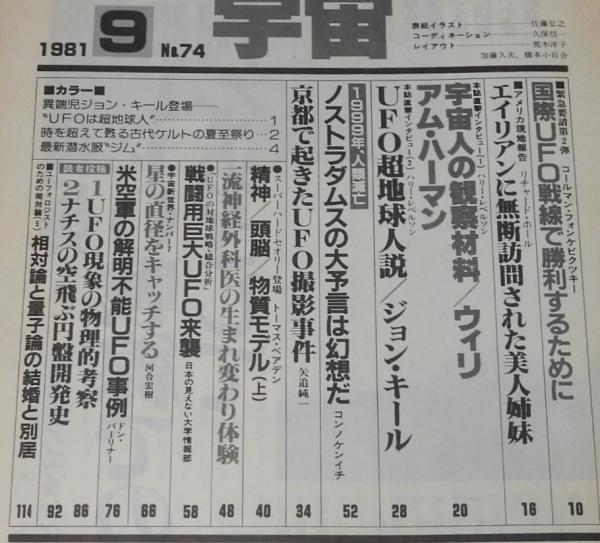 宇宙
1981 9 No.74
表紙イラスト 佐藤弘之
コーディネーション 久保信一
レイアウト 荒木洋子
加藤久夫、橋本小百合
■カラー■
異端児ジョン・キール登場──
“UFOは超地球人” 1
時を超えて甦る古代ケルトの夏至祭り…2
最新潜水服“ジム” 4
■緊急要請第2弾 コールマン・フォンケビツキー
国際UFO戦線で勝利するために 10
■アメリカ現地報告 リチャード・ホール
エイリアンに無断訪問された美人姉妹 16
本誌直撃インタビュー(1) ハリー・レベルソン
宇宙人の観察材料/ウィリアム・ハーマン 20
本誌直撃インタビュー(2) ハリー・レベルソン
UFO超地球人説/ジョン・キール 28
1999年・人類滅亡
ノストラダムスの大予言は幻想だ コンノケンイチ 52
京都で起きたUFO撮影事件 矢追純一 34
●スーパーハードセオリー登場 トーマス・ベアデン
精神/頭脳/物質モデル(上) 40
流神経外科医の生まれ変わり体験 48
●「UFOの対地球戦略・総合分析」
戦闘用巨大UFO来襲 日本の見えない大学情報部 58
●宇宙新世界・ナンバー7
星の直径をキャッチする 河合宏樹 66
米空軍の解明不能UFO事例 ドン・バーリナー 76
読者投稿
1 UFO現象の物理的考察 86
2 ナチスの空飛ぶ円盤開発史 92
■ユーフォロジストのための相対論(5)
相対論と量子論の結婚と別居 114